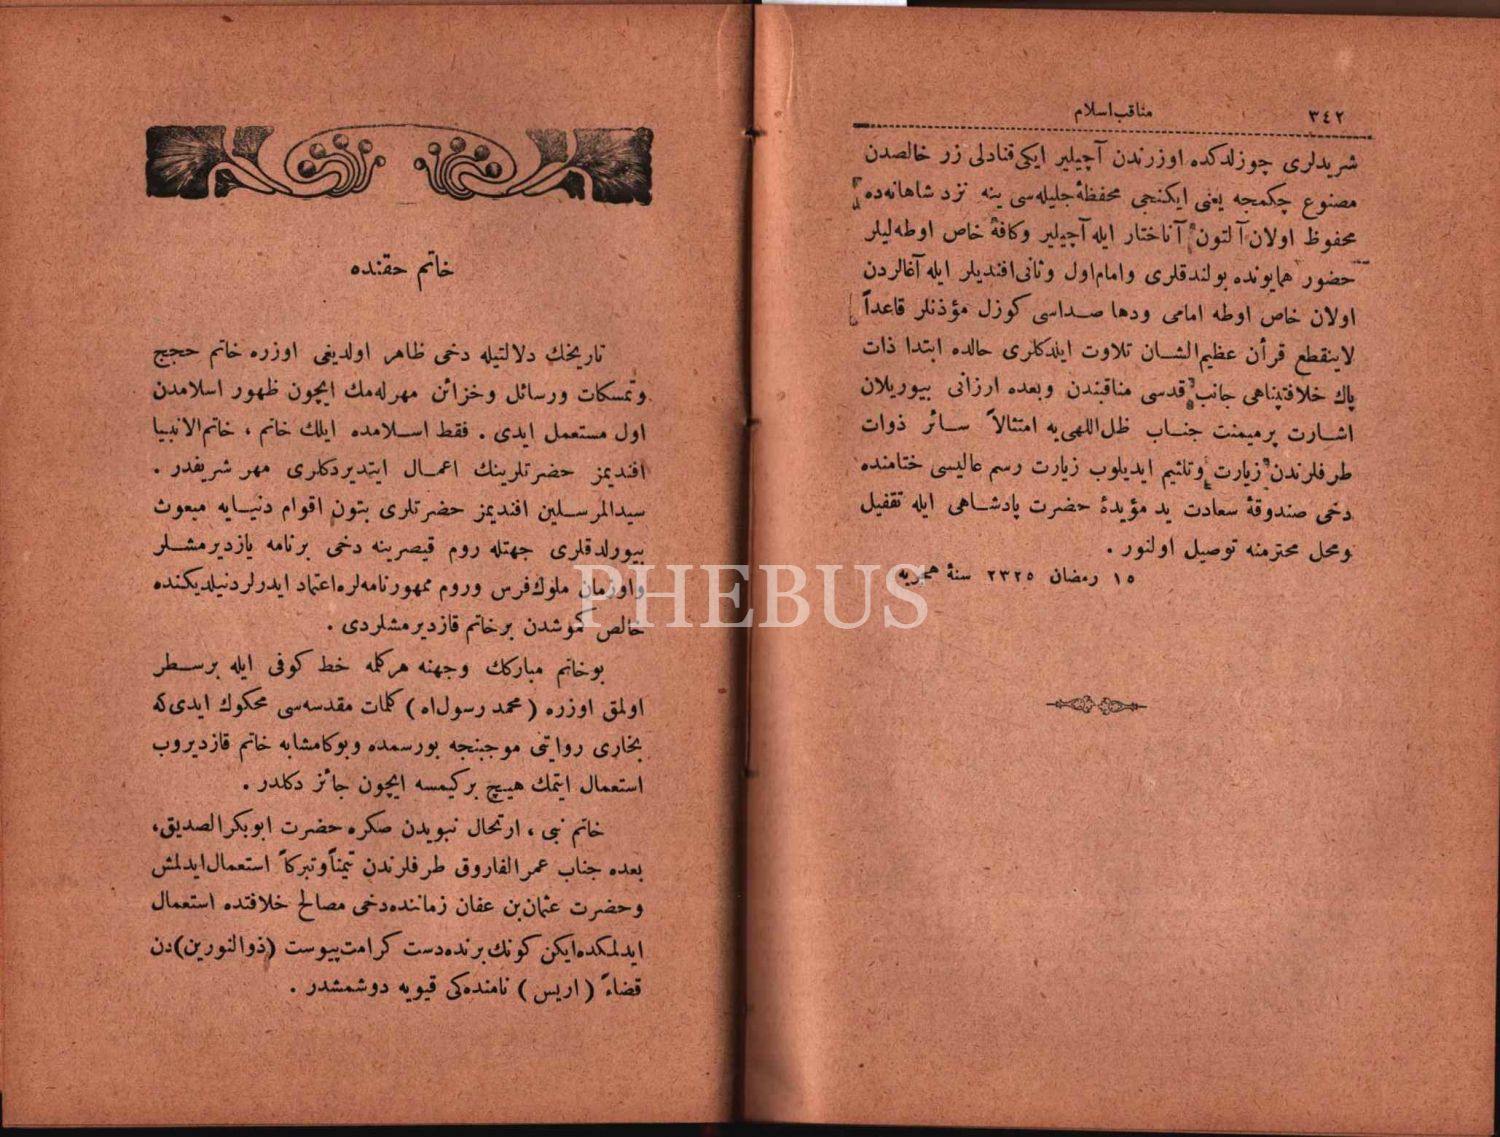 ٣٤٢
مناقب اسلام
شریدلری چوزلدکده اوزرندن آچیلیر ایکی قنادلی زر خالصدن
مصنوع چکمجه یعنی ایکنجی محفظۀ جلیله‌سی ینه نزد شاهانه‌ده
محفوظ اولان آلتون آناختار ایله آچیلیر وکافۀ خاص اوطه‌لیلر
حضور همایونده بولندقلری وامام اول وثانی افندیلر ایله آغالردن
اولان خاص اوطه امامی ودها صداسی کوزل مؤذنلر قاعداً
لاینقطع قرأن عظیم‌الشان تلاوت ایلدکلری حالده ابتدا ذات
پاك خلافتپناهی جانب قدسی مناقبندن وبعده ارزانی بیوریلان
اشارت پرمیمنت جناب ظل‌اللهی‌یه امتثالاً سائر ذوات
طرفلرندن زیارت وتلثیم ایدیلوب زیارت رسم عالیسی ختامنده
دخی صندوقۀ سعادت ید مؤیدۀ حضرت پادشاهی ایله تقفیل
ومحل محترمنه توصیل اولنور .
١٥ رمضان ٢٣٢٥ سنۀ هجریه
خاتم حقنده
تاریخك دلالتیله دخی ظاهر اولدیغی اوزره خاتم حجج
وتمسکات ورسائل وخزائن مهرله‌مك ایچون ظهور اسلامدن
اول مستعمل ایدی . فقط اسلامده ایلك خاتم ، خاتم‌الانبیا
افندیمز حضرتلرینك اعمال ایتدیردکلری مهر شریفدر .
سیدالمرسلین افندیمز حضرتلری بتون اقوام دنیایه مبعوث
بیورلدقلری جهتله روم قیصرینه دخی برنامه یازدیرمشلر
واوزمان ملوك فرس وروم ممهورنامه‌لره اعتماد ایدرلر دنیلدیکنده
خالص کموشدن برخاتم قازدیرمشلردی .
بوخاتم مبارکك وجهنه هرکلمه خط کوفی ایله برسطر
اولمق اوزره ( محمد رسول‌اه ) کلمات مقدسه‌سی محکوك ایدی‌که
بخاری روایتی موجبنجه بورسمده وبوکامشابه خاتم قازدیروب
استعمال ایتمك هیچ برکیمسه ایچون جائز دکلدر .
خاتم نبی ، ارتحال نبویدن صکره حضرت ابوبکرالصدیق،
بعده جناب عمرالفاروق طرفلرندن تیمناًوتبرکاً استعمال ایدلمش
وحضرت عثمان‌بن عفان زماننده‌دخی مصالح خلافتده استعمال
ایدلمکده‌ایکن کونك برنده‌دست کرامت‌پیوست (ذوالنورین)دن
قضاءً ( اریس ) نامنده‌کی قیویه دوشمشدر .
PHEBUS